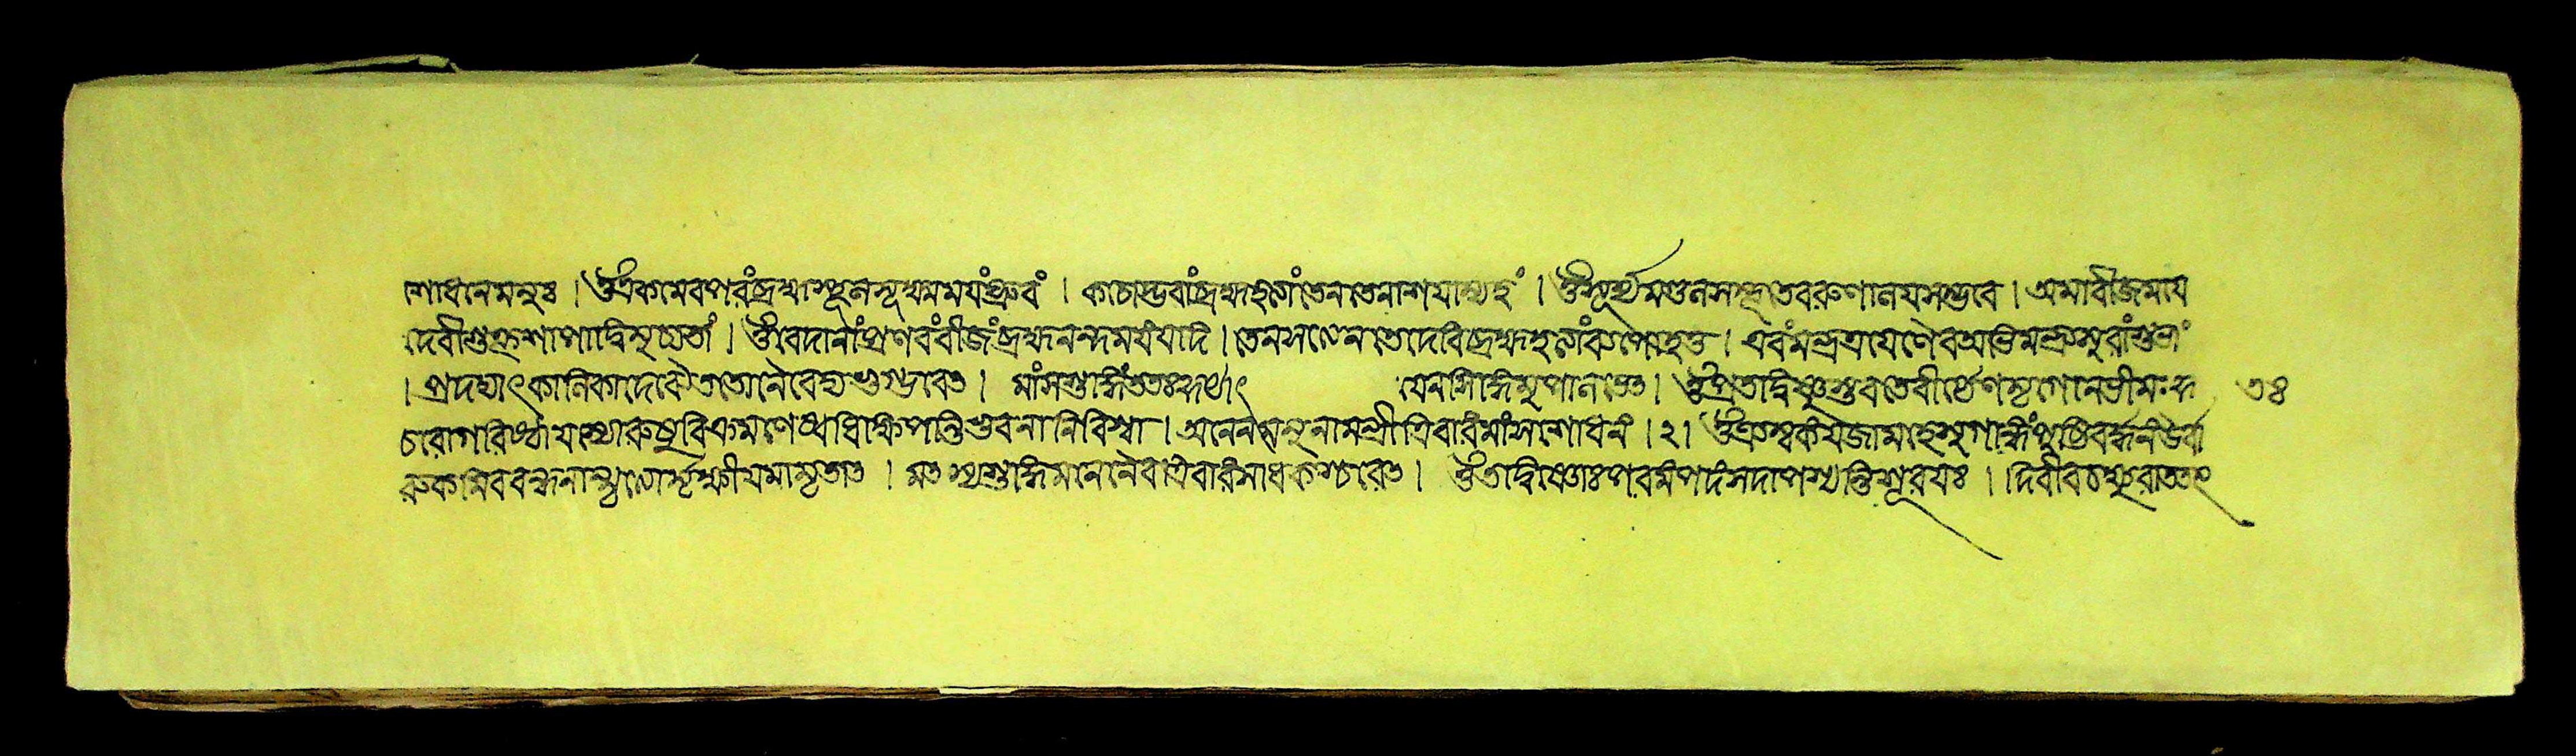 শোধনে মনুঃ । ওঁ একমেব পরংব্রহ্ম স্থূলসূক্ষ্মময়ংধ্রুবং । কচোদ্ভবাং ব্রহ্মহত্যাং তেন তে নাশয়াম্যহং । ওঁ সূর্য্যমণ্ডলসম্ভূতে বরুণালয়সম্ভবে । অমাবীজময়ে
দেবীশুক্রশাপাদ্বিমুচ্যতাং । ওঁ বেদানাং প্রণবংবীজং ব্রহ্মানন্দময়ং যদি । তেন সত্যেন তে দেবি ব্রহ্মহত্যাং ব্যপোহতু । এবং মন্ত্রত্রয়েণৈব অভিমন্ত্র্য সুরাং শুভাং
। প্রদদ্যাৎ কালিকাদেবৈ ততো নৈবেদ্যভুগ্ভবেৎ । মাংসশুদ্ধিং ততঃ কুর্য্যাৎ যেন সিদ্ধিমুপালভেৎ । ওঁ প্রতদ্বিষ্ণুস্তবতে বীর্য্যেণ মৃগো ন ভীমঃ কু ৩৪
চরো গিরিষ্ঠা যস্যোরুষু ত্রিবিক্রমণেষ্বধিক্ষিয়ন্তি ভুবনানি বিশ্বা । অনেন মনুনা মন্ত্রী ত্রিবারং মাংসশোধনং । ২। ওঁ ত্র্যম্বকং যজামহে সুগন্ধিং পুষ্টিবর্দ্ধনং উর্বা
রুকমিব বন্ধনান্মৃত্যোর্মুক্ষীয় মামৃতাৎ । মৎস্যশুদ্ধিমনেনৈব ত্রিবারং সাধকশ্চরেৎ । ওঁ তদ্বিষ্ণোঃ পরমং পদং সদা পশ্যন্তি সূরয়ঃ । দিবীব চক্ষুরাততং